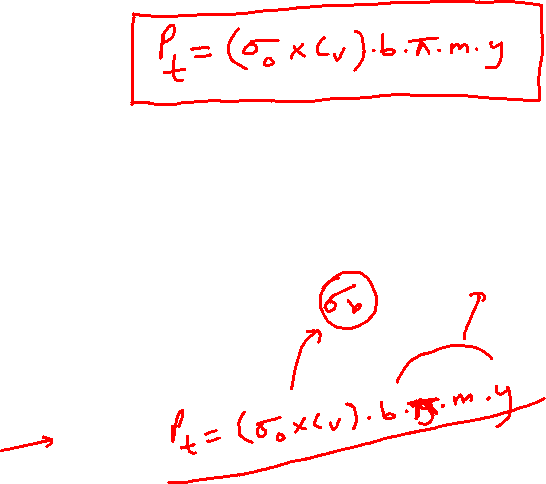 P_t = (σ_o × C_v) · b · π · m · y
σ_b
P_t = (σ_o × C_v) · b · π · m · y